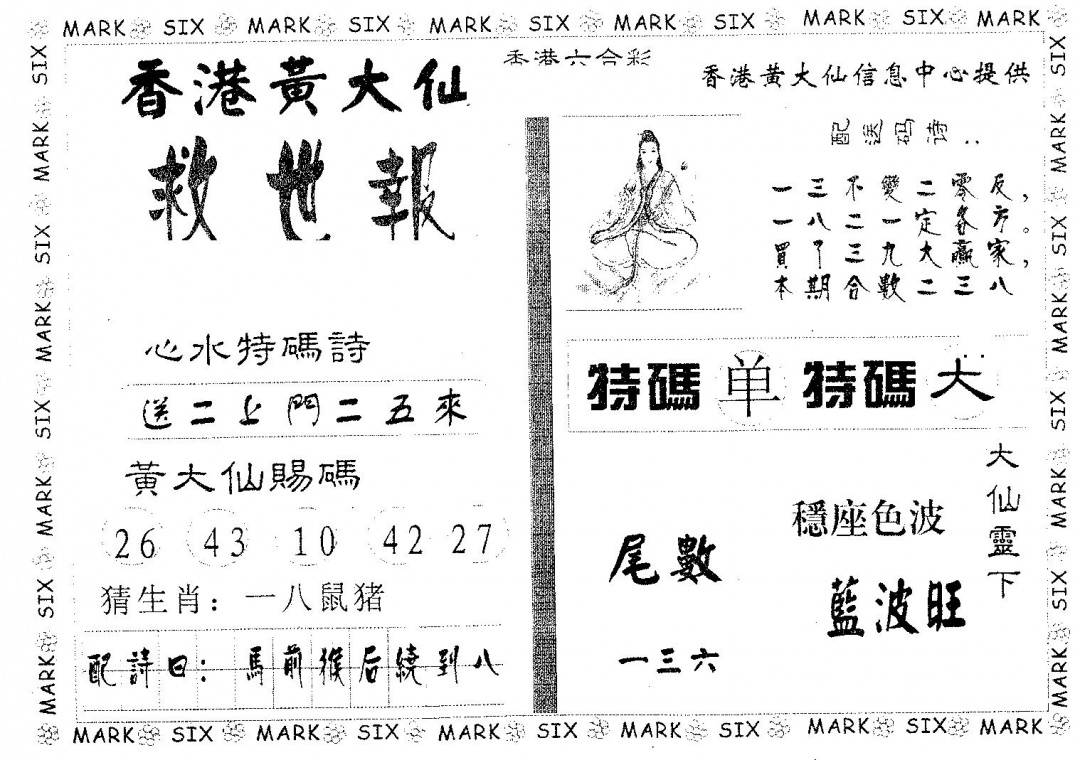 MARK SIX MARK SIX MARK SIX MARK SIX MARK SIX MARK
香港六合彩
香港黃大仙
救世報
心水特碼詩
送二上門二五來
黃大仙賜碼
26 43 10 42 27
猜生肖：一八鼠猪
配詩曰：馬前猴后繞到八
香港黃大仙信息中心提供
配送码诗：
一三不變二零反，
一八二一定各方。
買了三九大贏家，
本期合數二三八
特碼 单 特碼 大
大仙靈下
穩座色波
藍波旺
尾數
一三六
MARK SIX MARK SIX MARK SIX MARK SIX MARK SIX MARK
SIX MARK SIX MARK SIX MARK SIX MARK
SIX MARK SIX MARK SIX MARK SIX MARK